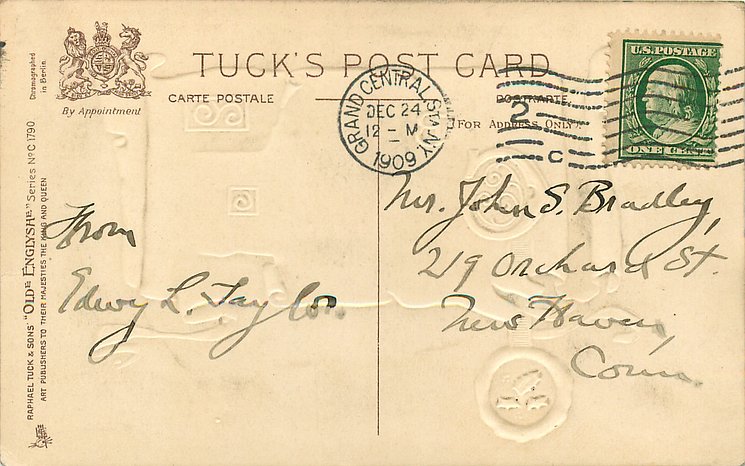 TUCK'S POST CARD
CARTE POSTALE
POSTKARTE
(FOR ADDRESS ONLY)
Chromographed
in Berlin
By Appointment
RAPHAEL TUCK & SONS' "OLDE ENGLYSHE" Series No C 1790
ART PUBLISHERS TO THEIR MAJESTIES THE KING AND QUEEN
GRAND CENTRAL STA. N.Y.
DEC 24
12 - M
1909
2
C
U.S. POSTAGE
ONE CENT
From
Edwy L. Taylor.
Mr. John S. Bradley,
219 Orchard St.
New Haven,
Conn.